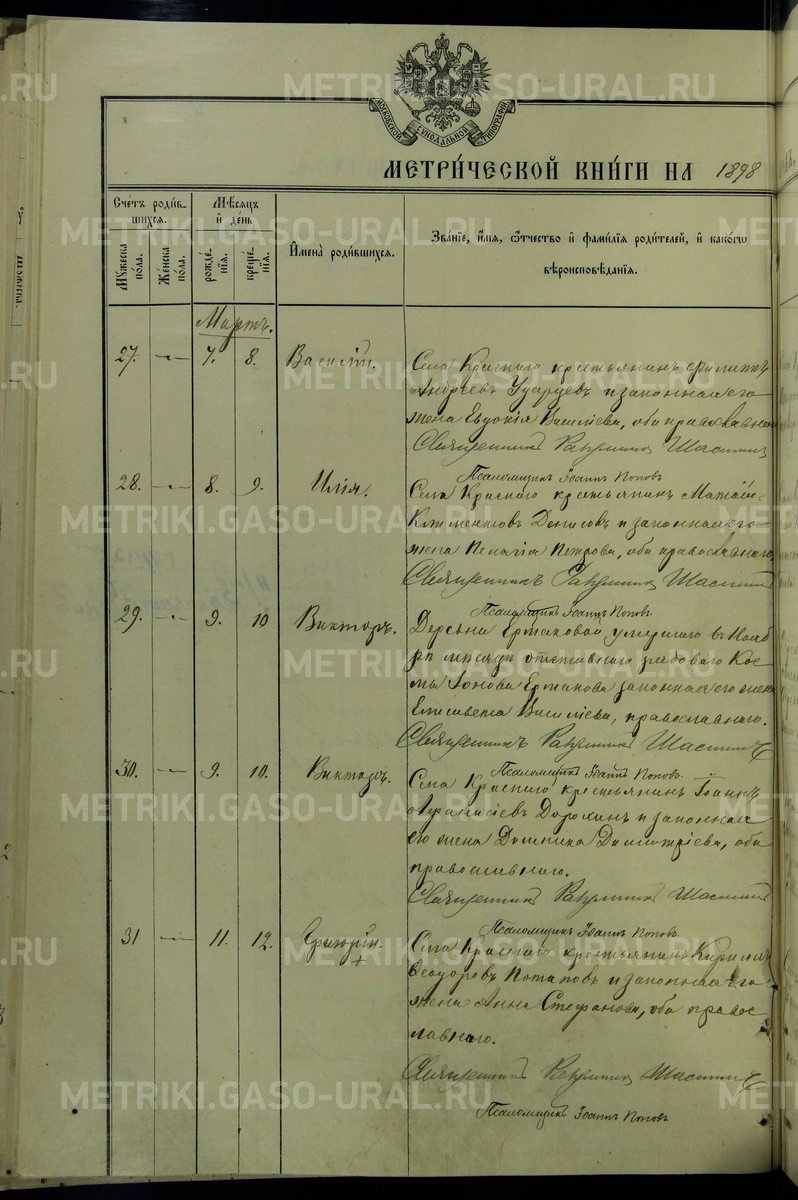 МОСКОВСКОЙ СѴНОДАЛЬНОЙ ТИПОГРАФІИ
МЕТРИ́ЧЕСКОЙ КНИ́ГИ НА 1898
Сче́тъ роди́в-
шихся.
Му́жеска
по́ла.
Же́нска
по́ла.
Мѣ́сяцъ
и҆ де́нь
рожде́-
нїя.
креще́-
нїя.
И҆мена̀ роди́вшихся.
Зва́нїе, и҆́мя, ѻ҆́тчество и҆ фами́лїя роди́телей, и҆ како́гѡ
вѣроисповѣ́данїя.
Мартъ.
27. 7. 8. Василій.
Села Краснаго крестьянинъ Филиппъ
Андреевъ Ударцевъ и законная его
жена Евдокія Василіева, оба православнаго
Священникъ Шастинъ
Псаломщикъ Іоаннъ Поповъ
28. 8. 9. Илія.
Села Краснаго крестьянинъ Матѳій
Климентовъ Денисовъ и законная его
жена Пелагія Петрова, оба православнаго
Священникъ Шастинъ
Псаломщикъ Іоаннъ Поповъ.
29. 9. 10 Викторъ.
Деревни Ермаковой умершаго въ Нояб
рѣ мѣсяцѣ отставнаго рядоваго Кос
мы Іонова Ермакова законная его жена
Елисавета Василіева, православнаго.
Священникъ Шастинъ
Псаломщикъ Іоаннъ Поповъ.
30. 9. 10. Викторъ.
Села Краснаго крестьянинъ Іоаннъ
Аѳанасіевъ Дорохинъ и законная
его жена Домника Димитріева, оба
православнаго.
Священникъ Шастинъ
Псаломщикъ Іоаннъ Поповъ.
31 11. 12. Григорій.
+
Села Краснаго крестьянинъ Кириллъ
Ѳеодоровъ Потаповъ и законная его
жена Анна Стефанова, оба правос
лавнаго.
Священникъ Шастинъ
Псаломщикъ Іоаннъ Поповъ
METRIKI.GASO-URAL.RU